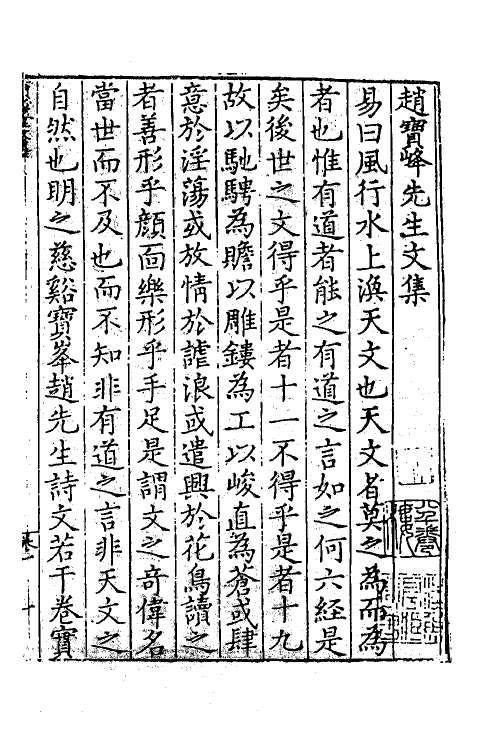 趙寶峰先生文集
易曰風行水上渙天文也天文者莫之為而為
者也惟有道者能之有道之言如之何六経是
矣後世之文得乎是者十一不得乎是者十九
故以馳騁為贍以雕鏤為工以峻直為蒼或肆
意於淫蕩或放情於謔浪或遣興於花鳥讀之
者善形乎顔面樂形乎手足是謂文之奇偉名
當世而不及也而不知非有道之言非天文之
自然也明之慈谿寶峯趙先生詩文若干卷寳